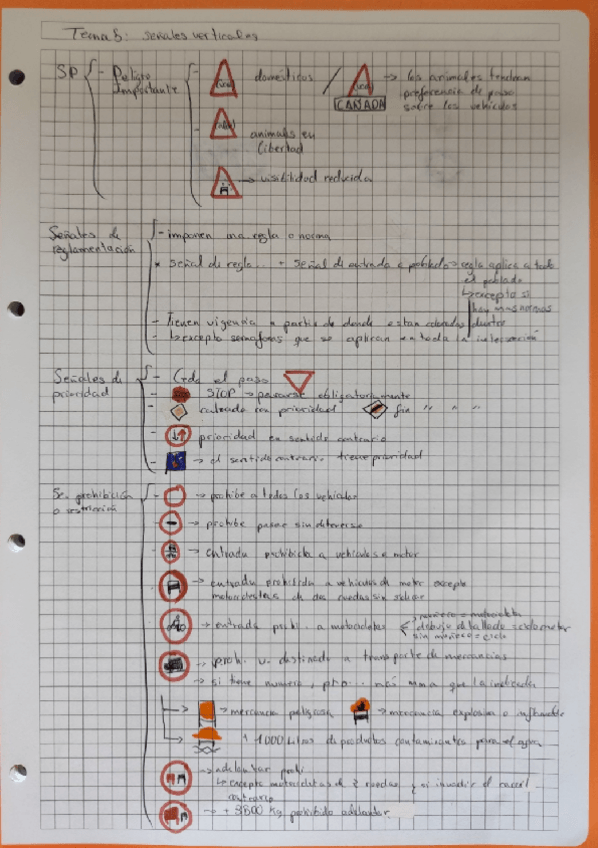 Tema 5: señales verticales
SP - Peligro importante
domésticos / CAÑADA → los animales tendrán preferencia de paso sobre los vehículos
animales en libertad
→ visibilidad reducida
Señales de reglamentación
- imponen una regla o norma
* señal de regla... + señal de entrada a poblado → regla aplica a todo el poblado
↳ excepto si hay mas normas dentro
- Tienen vigencia a partir de donde estan colocadas
- ↳ excepto semaforos que se aplican en toda la intersección
Señales de prioridad
- Ceda el paso
- STOP → pararse obligatoriamente
- calzada con prioridad fin " " "
- prioridad en sentido contrario
- → el sentido contrario tiene prioridad
Se. prohibición o restricción
- → prohibe a todos los vehiculos
- → prohibe pasar sin detenerse
- → entrada prohibida a vehiculos a motor
→ entrada prohibida a vehiculos de motor excepto motocicletas de dos ruedas sin sidecar
- → entrada prohi. a motocicletas
muñeco = motocicleta
dibujo detallado = ciclomotor
sin muñeco = ciclo
→ proh. v. destinado a transporte de mercancias
→ si tiene numero, pro... más mma que la indicada
→ mercancia peligrosa → mercancia explosiva o inflamable
+ 1000 litros de productos contaminantes para el agua
→ adelantar prohi
↳ excepto motocicletas de 2 ruedas y si invadir el carril contrario
→ + 3500 kg prohibido adelantar